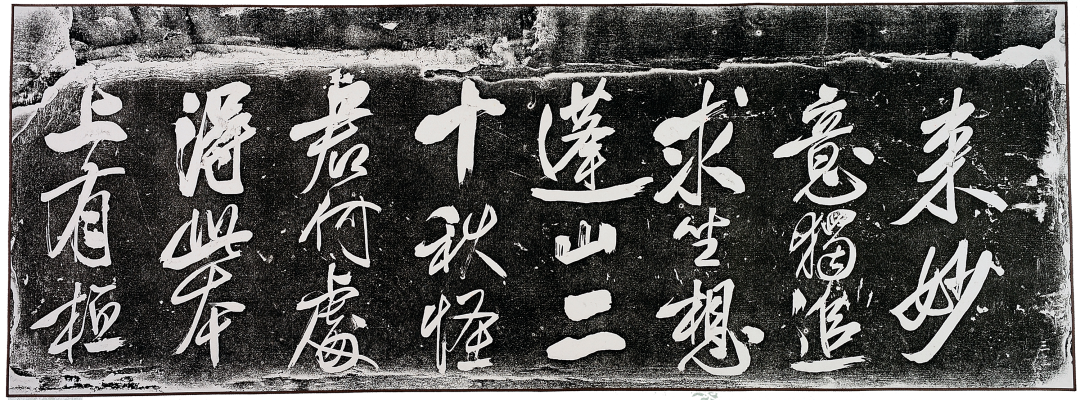 来妙
意獨追
求坐想
蓬山二
十秋怪
君何處
得此本
上有桓